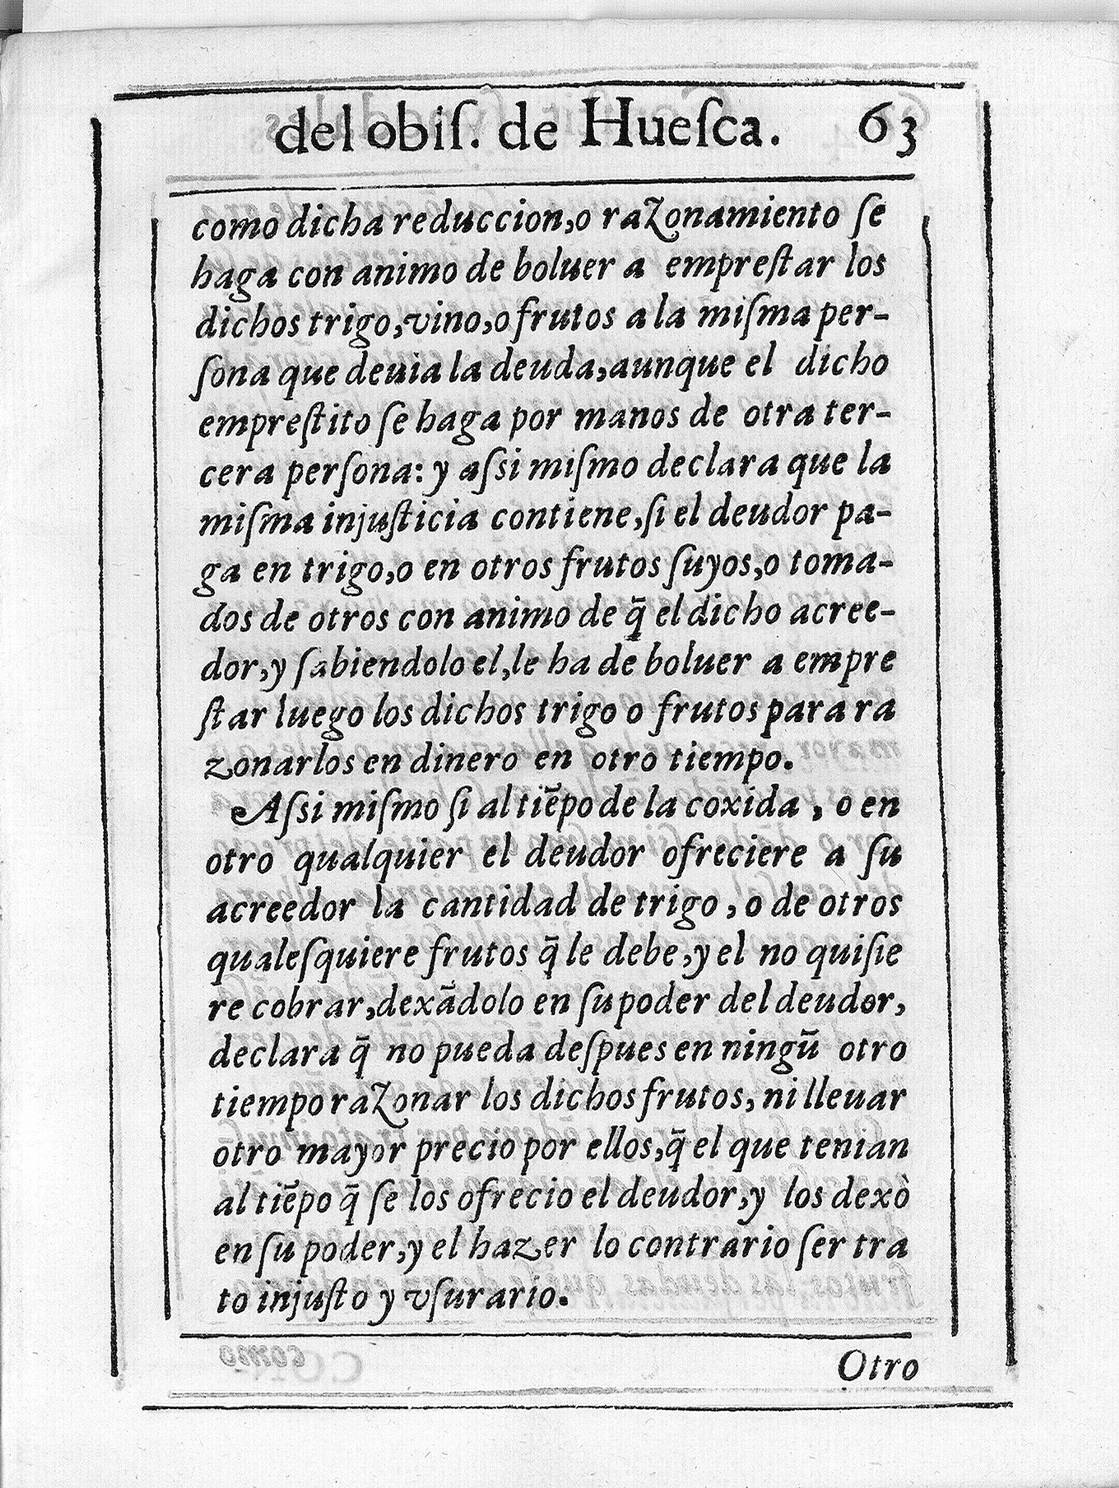 del obiſ. de Hueſca. 63
como dicha reduccion,o razonamiento ſe
haga con animo de boluer a empreſtar los
dichos trigo,vino,o frutos a la miſma per-
ſona que deuia la deuda,aunque el dicho
empreſtito ſe haga por manos de otra ter-
cera perſona: y aſsi miſmo declara que la
miſma injuſticia contiene,ſi el deudor pa-
ga en trigo,o en otros frutos ſuyos,o toma-
dos de otros con animo de q̃ el dicho acree-
dor,y ſabiendolo el,le ha de boluer a empre
ſtar luego los dichos trigo o frutos para ra
zonarlos en dinero en otro tiempo.
Aſsi miſmo ſi al tiẽpo de la coxida , o en
otro qualquier el deudor ofreciere a ſu
acreedor la cantidad de trigo , o de otros
qualeſquiere frutos q̃ le debe,y el no quiſie
re cobrar,dexãdolo en ſu poder del deudor,
declara q̃ no pueda deſpues en ningũ otro
tiempo razonar los dichos frutos, ni lleuar
otro mayor precio por ellos,q̃ el que tenian
al tiẽpo q̃ ſe los ofrecio el deudor,y los dexò
en ſu poder,y el hazer lo contrario ſer tra
to injuſto y vſurario.
Otro